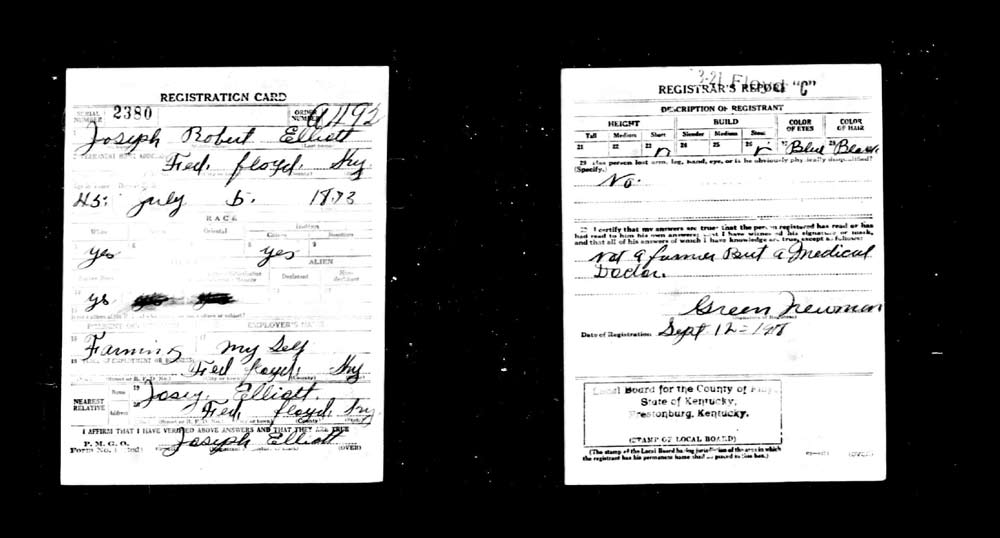 REGISTRATION CARD
SERIAL NUMBER 2380 ORDER NUMBER A1192
Joseph Robert Elliott
Fed, floyd, Ky
45; July 6. 1873
RACE
White Oriental Indian
Citizen
yes yes
ALIEN
Declarant
yes
EMPLOYER'S NAME
Farming my Self
Fed floyd, Ky
NEAREST RELATIVE Name Josey, Elliott.
Address Fed, floyd, Ky
I AFFIRM THAT I HAVE VERIFIED ABOVE ANSWERS AND THAT THEY ARE TRUE
P. M. G. O.
Form No. 1 Joseph Elliott (OVER)
3-21 Floyd "C"
REGISTRAR'S REPORT
DESCRIPTION OF REGISTRANT
HEIGHT BUILD COLOR OF EYES COLOR OF HAIR
Tall Medium Short Slender Medium Stout
21 22 23 24 25 26 27 Blue 28 Black
29 Has person lost arm, leg, hand, eye, or is he obviously physically disqualified?
(Specify.)
No.
30 I certify that my answers are true; that the person registered has read or has
had read to him his own answers; that I have witnessed his signature or mark,
and that all of his answers of which I have knowledge are true, except as follows:
not a farmer But a medical
Doctor.
Green Newman
Date of Registration Sept 12 = 1918
Local Board for the County of Floyd,
State of Kentucky,
Prestonburg, Kentucky.
(STAMP OF LOCAL BOARD)
(The stamp of the Local Board having jurisdiction of the area in which
the registrant has his permanent home shall be placed in this box.)
(OVER)